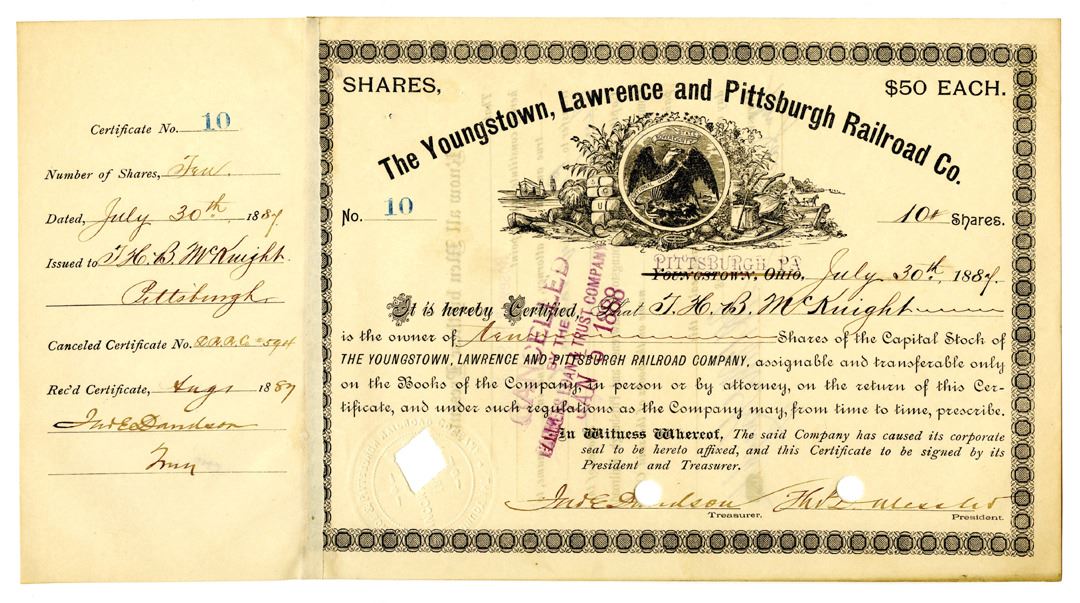 Certificate No. 10
Number of Shares, Ten.
Dated, July 30th, 1887.
Issued to T. H. B. McKnight.
Pittsburgh,
Canceled Certificate No.
Rec'd Certificate, Aug 1887
Jno E Davidson
Treas
SHARES,
$50 EACH.
The Youngstown, Lawrence and Pittsburgh Railroad Co.
No. 10
10 Shares.
PITTSBURGH, PA
YOUNGSTOWN, OHIO, July 30th, 1887.
It is hereby Certified, That T. H. B. McKnight
is the owner of Ten Shares of the Capital Stock of
THE YOUNGSTOWN, LAWRENCE AND PITTSBURGH RAILROAD COMPANY, assignable and transferable only
on the Books of the Company, in person or by attorney, on the return of this Cer-
tificate, and under such regulations as the Company may, from time to time, prescribe.
In Witness Whereof, The said Company has caused its corporate
seal to be hereto affixed, and this Certificate to be signed by its
President and Treasurer.
Jno E Davidson
Treasurer.
President.
CANCELLED
BY THE
LOAN AND TRUST COMPANY
JAN 9 1888